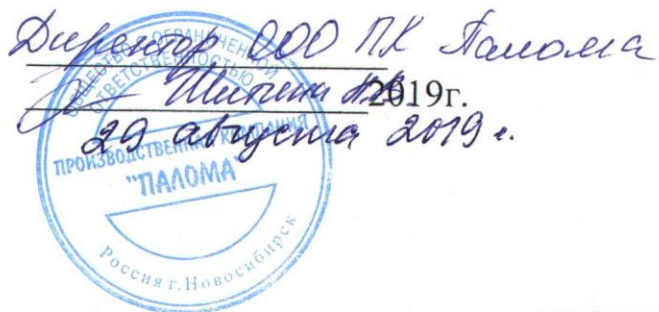 Директор ООО ПК Палома
Шипина 2019г.
29 августа 2019 г.
ОБЩЕСТВО С ОГРАНИЧЕННОЙ
ОТВЕТСТВЕННОСТЬЮ
ПРОИЗВОДСТВЕННАЯ КОМПАНИЯ
"ПАЛОМА"
Россия г.Новосибирск